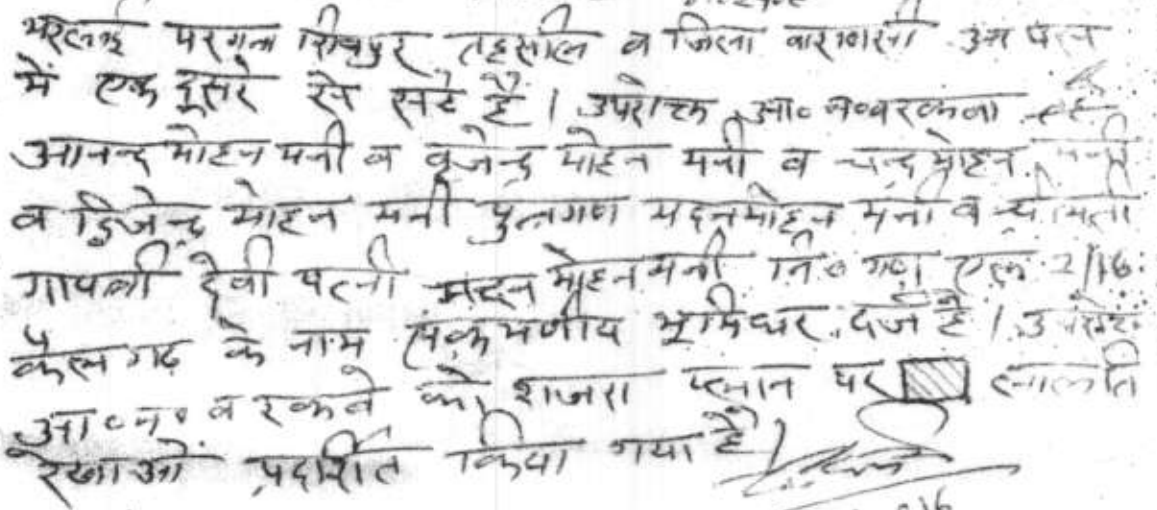 भरलाई परगना शिवपुर तहसील व जिला वाराणसी
में एक दूसरे से सटे है। उपरोक्त आ० न० व रकबा
आनन्द मोहन मनी व बृजेन्द्र मोहन मनी व चन्द्र मोहन मनी
व द्विजेन्द्र मोहन मनी पुत्रगण मदनमोहन मनी व श्रीमती
गायत्री देवी पत्नी मदन मोहन मनी नि० गण एल 2/16
के नाम संक्रमणीय भूमिधर दर्ज है। उपरोक्त
आ० न० व रकबे को शजरा प्लान पर लाल
रेखाओं प्रदर्शित किया गया है।